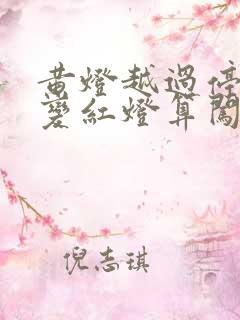 黄燈越過停
變紅燈算闖
倪志琪